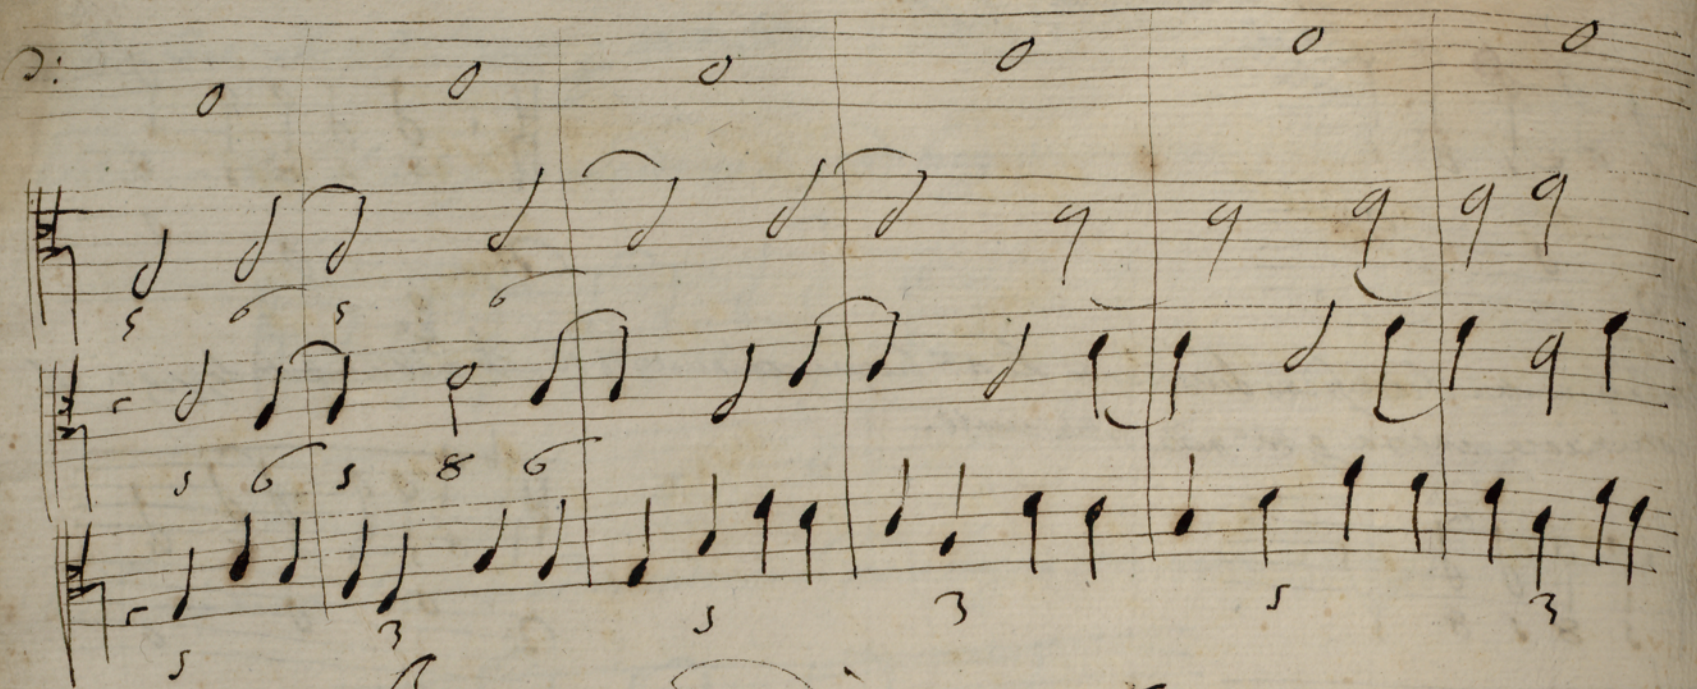 5 6 5 6
5 6 5 8 6
5 3 5 3 5 3